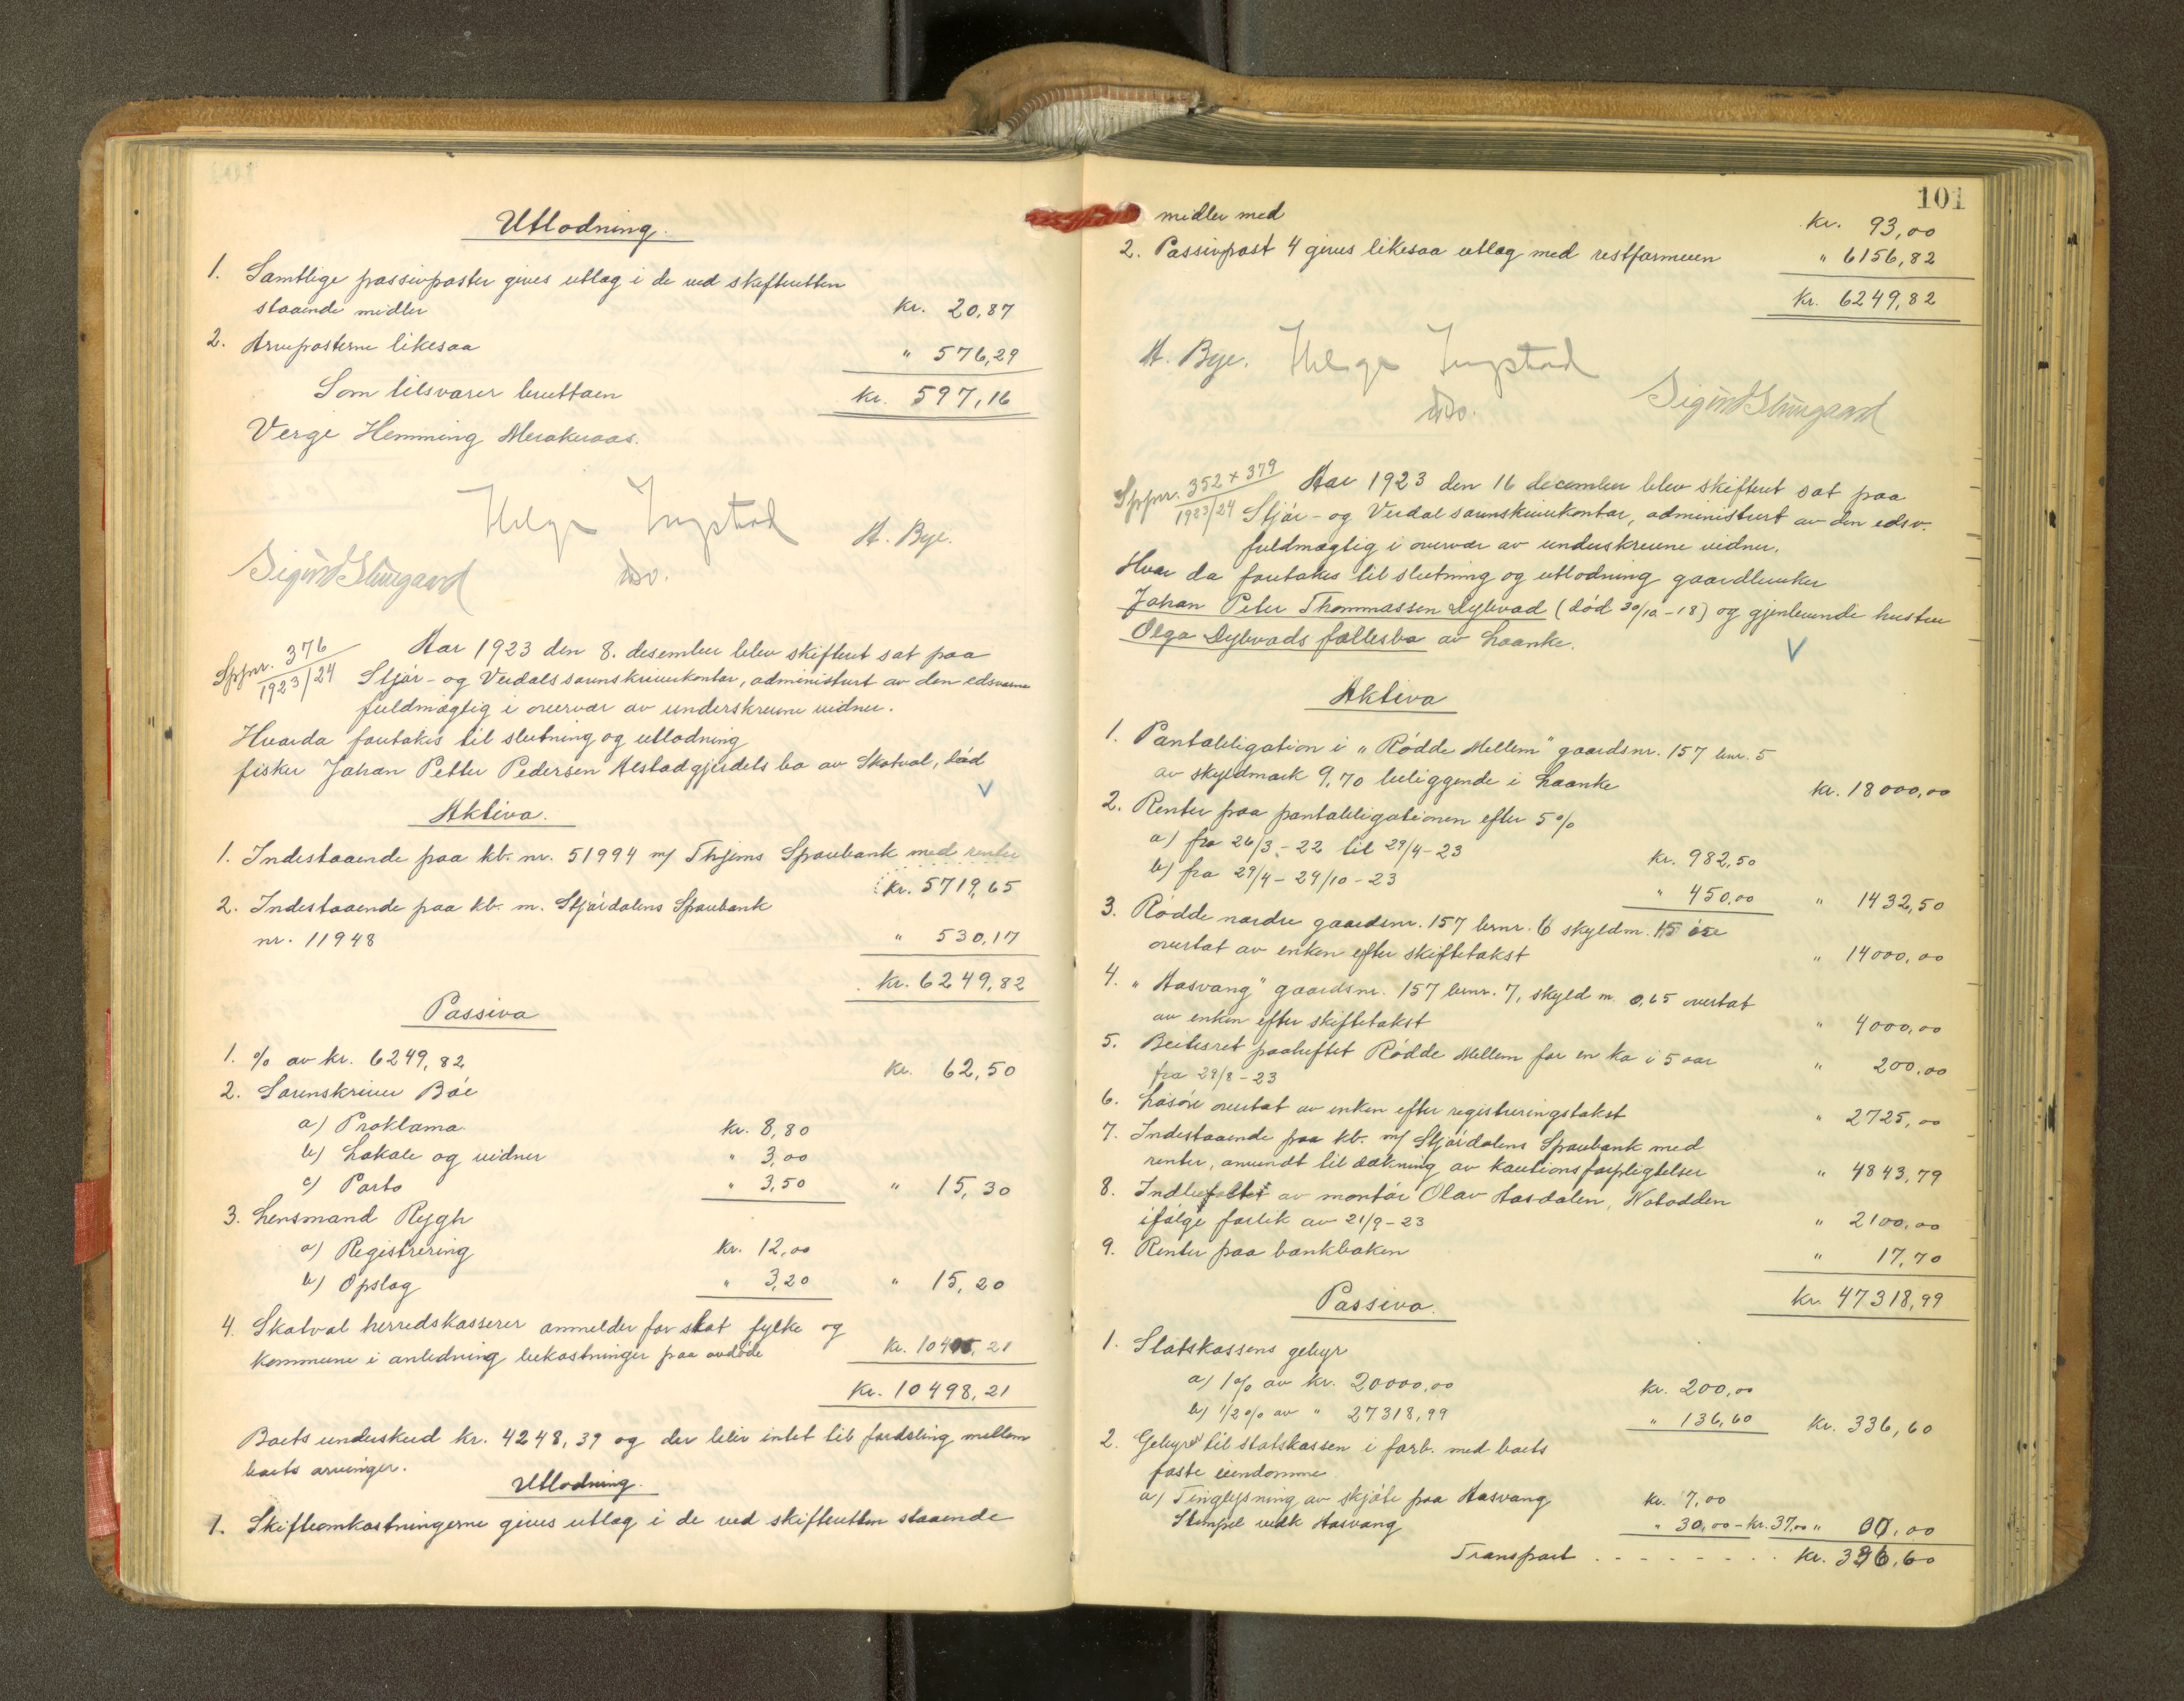 Utlodning.
1. Samtlige passivposter gives utlæg i de ved skifteretten
staaende midler kr. 20,87
2. Arveposterne likesaa " 576,29
Som tilsvarer bruttoen kr. 597,16
Verge Hemming Merakeraas.
Helge Ingstad
A. Bye.
Sigurd Stuugaard
Sppr. 376
1923/24
Aar 1923 den 8. desember blev skifteret sat paa
Stjør- og Verdals sorenskriverkontor, administrert av den edsvorne
fuldmægtig i overvær av underskrevne vidner.
Hvorda foretakes til slutning og utlodning
fisker Johan Petter Pedersen Alstadgjerdets bo av Skatval, død
Aktiva.
1. Indestaaende paa kb. nr. 51994 m/ Thjems Sparebank med renter
kr. 5719,65
2. Indestaaende paa kb. m. Stjørdalens Sparebank
nr. 11948 " 530,17
kr. 6249,82
Passiva
1. % av kr. 6249,82 kr. 62,50
2. Sorenskriver Bøe
a) Proklama. kr. 8,80
b) Lokale og vidner " 3,00
c) Porto " 3,50 " 15,30
3. Lensmand Rygh
a) Registrering kr. 12,00
b) Opslag " 3,20 " 15,20
4. Skatval herredskasserer anmelder for skat fylke og
kommune i anledning bekostninger paa avdøde kr. 10405,21
kr. 10498,21
Boets underskud kr. 4248,39 og der blir intet til fordeling mellem
boets arvinger.
Utlodning.
1. Skifteomkostningerne gives utlæg i de ved skifteretten staaende
101
midler med kr. 93,00
2. Passivpost 4 gives likesaa utlæg med restformuen " 6156,82
kr. 6249,82
A. Bye. Helge Ingstad
Sigurd Stuugaard
Sppnr. 352 + 379
1923/24
Aar 1923 den 16 december blev skifteret sat paa
Stjør- og Verdal sorenskriverkontor, administrert av den edsv.
fuldmægtig i overvær av underskrevne vidner.
Hvor da foretakes til slutning og utlodning gaardbruker
Johan Peter Thommassen Dybvad (død 30/10-18) og gjenlevende hustru
Olga Dybvads fællesbo av Laanke.
Aktiva
1. Pantobligation i "Rødde Mellem" gaardsnr. 157 bnr. 5
av skyldmark 9,70 beliggende i Laanke kr. 18000,00
2. Renter paa pantobligationen efter 5%
a) fra 26/3-22 til 29/4-23 kr. 982,50
b) fra 29/4 - 29/10-23 " 450,00 " 1432,50
3. Rødde nordre gaardsnr. 157 brnr. 6 skyldm. 15 øre
overtat av enken efter skiftetakst " 14000,00
4. "Aasvang" gaardsnr. 157 bnr. 7, skyld m. 0,65 overtat
av enken efter skiftetakst " 4000,00
5. Beitesret paaheftet Rødde Mellem for en ko i 5 aar
fra 29/8-23 " 200,00
6. Løsøre overtat av enken efter registreringstakst " 2725,00
7. Indestaaende paa kb. m/ Stjørdalens Sparebank med
renter, anvendt til dækning av kautionsforpligtelser " 4843,79
8. av montør Olav Aasdalen, Notodden
ifølge forlik av 21/9-23 " 2100,00
9. Renter paa bankboken " 17,70
kr. 47318,99
Passiva.
1. Statskassens gebyr
a) 1% av kr. 20000,00 kr. 200,00
b) 1/2% av " 27318,99 " 136,60 kr. 336,60
2. Gebyrer til statskassen i forb. med boets
faste eiendomme
a) Tinglysning av skjøte paa Aasvang kr. 7,00
Stempel vedk Aasvang " 30,00 - kr. 37,00 "
Transport - - - - - - - - kr.